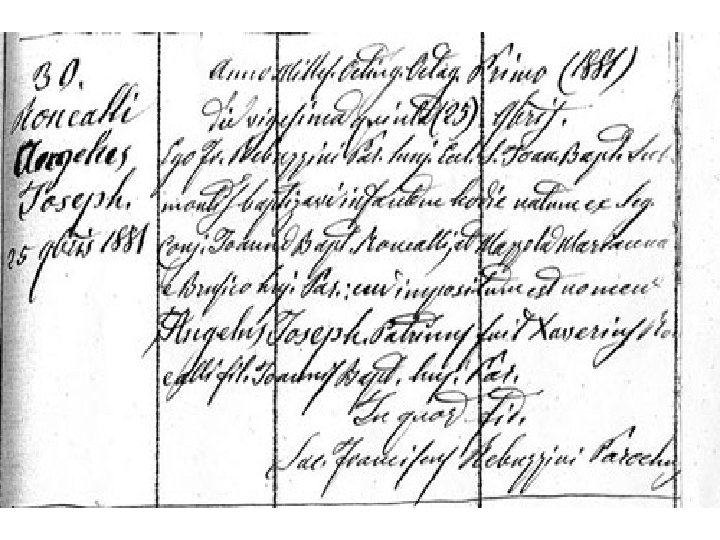 30.
Roncalli
Angelus
Joseph.
25 9bris 1881
Anno Milles. Octing. Octag. Primo (1881)
die vigesima quinta (25) 9bris.
Ego Fr. Rebuzzini Par. huj. Eccl. S. Joan. Bapt. Sub
montis baptizavi infantem hodie natum ex leg.
conj. Joanne Bapt. Roncalli, et Mazzola Marianna
e Brusico huj. Par.: cui impositum est nomen
Angelus Joseph. Patrinus fuit Xaverius Ron
calli fil. Joannis Bapt. huj. Par.
In quor. fid.
Sac. Franciscus Rebuzzini Parochus